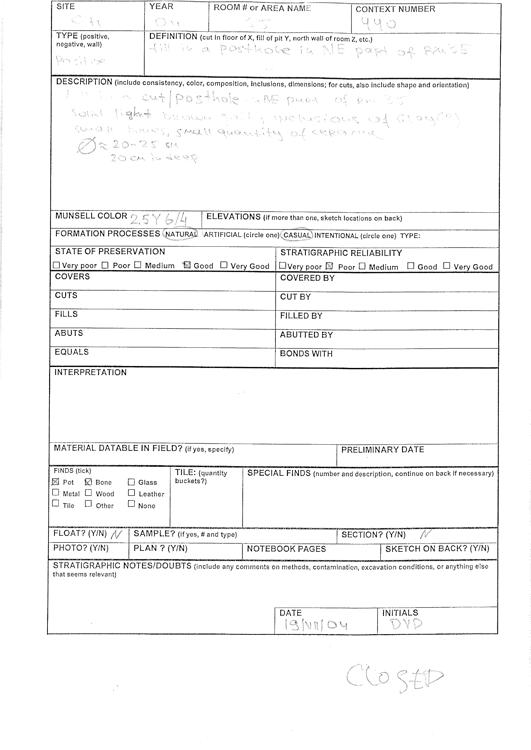 SITE YEAR ROOM # or AREA NAME CONTEXT NUMBER
04 35 440
TYPE (positive, negative, wall) DEFINITION (cut in floor of X, fill of pit Y, north wall of room Z, etc.)
positive fill in a posthole in NE part of RM 35
DESCRIPTION (include consistency, color, composition, inclusions, dimensions; for cuts, also include shape and orientation)
cut/posthole NE part of RM 35
light brown inclusions of
small bones, small quantity of
Ø ≈ 20-25 cm
20 cm deep
MUNSELL COLOR 2.5Y 6/4 ELEVATIONS (if more than one, sketch locations on back)
FORMATION PROCESSES NATURAL ARTIFICIAL (circle one) CASUAL INTENTIONAL (circle one) TYPE:
STATE OF PRESERVATION STRATIGRAPHIC RELIABILITY
☐ Very poor ☐ Poor ☐ Medium ☒ Good ☐ Very Good ☐ Very poor ☒ Poor ☐ Medium ☐ Good ☐ Very Good
COVERS COVERED BY
CUTS CUT BY
FILLS FILLED BY
ABUTS ABUTTED BY
EQUALS BONDS WITH
INTERPRETATION
MATERIAL DATABLE IN FIELD? (if yes, specify) PRELIMINARY DATE
FINDS (tick) TILE: (quantity buckets?) SPECIAL FINDS (number and description, continue on back if necessary)
☒ Pot ☒ Bone ☐ Glass
☐ Metal ☐ Wood ☐ Leather
☐ Tile ☐ Other ☐ None
FLOAT? (Y/N) N SAMPLE? (if yes, # and type) SECTION? (Y/N) N
PHOTO? (Y/N) PLAN ? (Y/N) NOTEBOOK PAGES SKETCH ON BACK? (Y/N)
STRATIGRAPHIC NOTES/DOUBTS (include any comments on methods, contamination, excavation conditions, or anything else
that seems relevant)
DATE INITIALS
19/VII/04 DVD
CLOSED